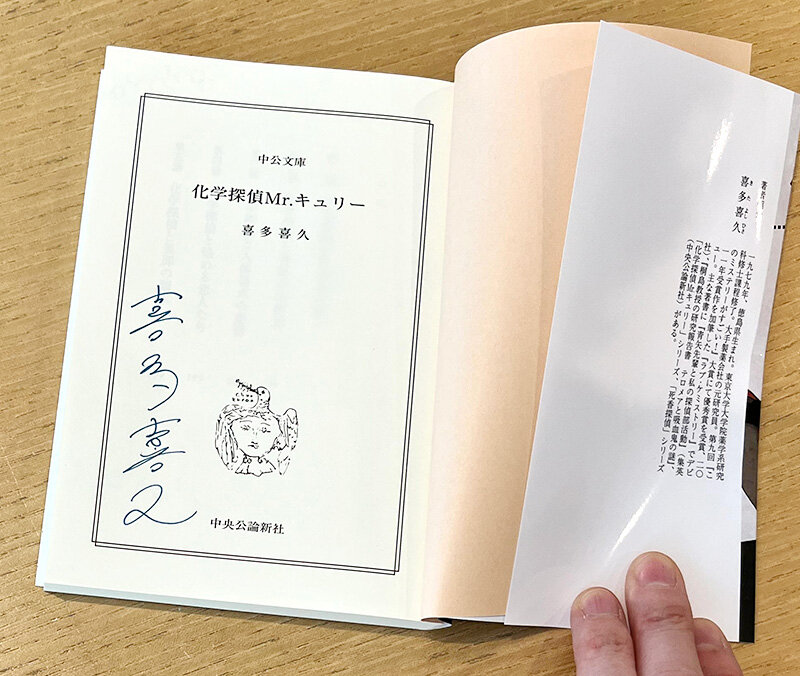 中公文庫
化学探偵Mr.キュリー
喜多喜久
喜多喜久
中央公論新社
喜多喜久
きたよしひさ
一九七九年、徳島県生まれ。東京大学大学院薬学系研究
科修士課程修了。大手製薬会社の元研究員。第九回『こ
のミステリーがすごい!』大賞にて優秀賞を受賞、二〇
一一年受賞作を加筆した『ラブ・ケミストリー』でデビ
ュー。主な著書に『青矢先輩と私の探偵部活動』(集英
社)、『桐島教授の研究報告書 テロメアと吸血鬼の謎』、
「化学探偵Mr.キュリー」シリーズ、「死香探偵」シリーズ
(中央公論新社)がある。